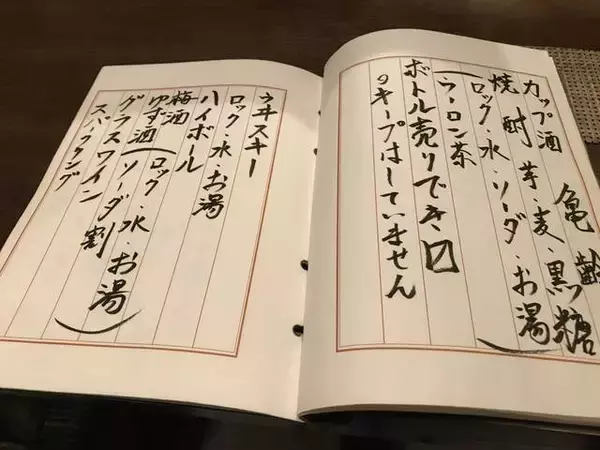 カップ酒 亀齢
焼酎 芋・麦・黒糖
(ロック・水・ソーダ・お湯)
ウーロン茶
ボトル売りでき〼
のキープはしていません
ウヰスキー
ロック・水・お湯
ハイボール
梅酒
ゆず酒(ロック・水・お湯
ソーダ割)
グラスワイン
スパークング